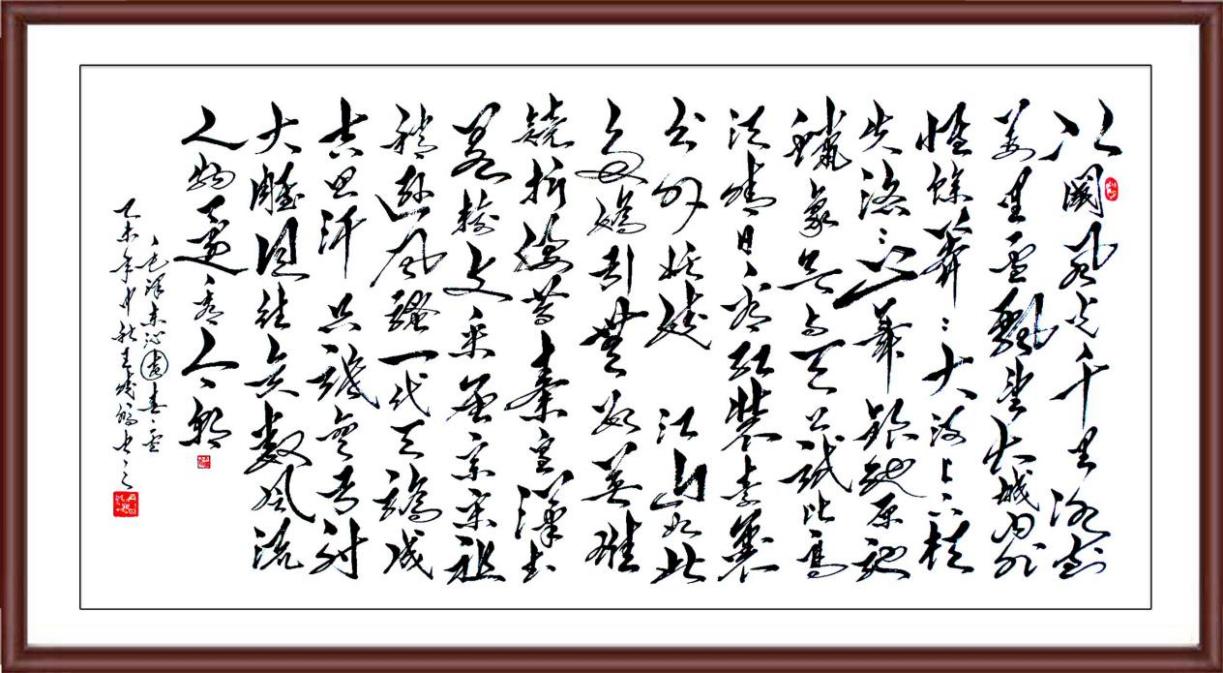 北國風光千里冰封
萬里雪飄望长城内外
惟餘莽莽大河上下頓
失滔滔山舞銀蛇原馳
蠟象欲与天公試比高
須晴日看紅裝素裹
分外妖娆 江山如此
多嬌引無數英雄
競折腰昔秦皇漢武
略輸文采唐宗宋祖
稍遜風騷一代天驕成
吉思汗只識彎弓射
大雕俱往矣數風流
人物還看今朝
毛泽东沁园春雪
乙未年中秋